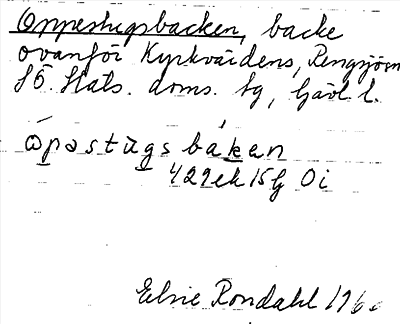 Oppestugsbacken, backe
ovanför Kyrkvärdens, Rengsjö sn
Häls. doms. tg, Gävl. l.
opastugs baken
429ek 15g Oi
Elsie Rondahl 196